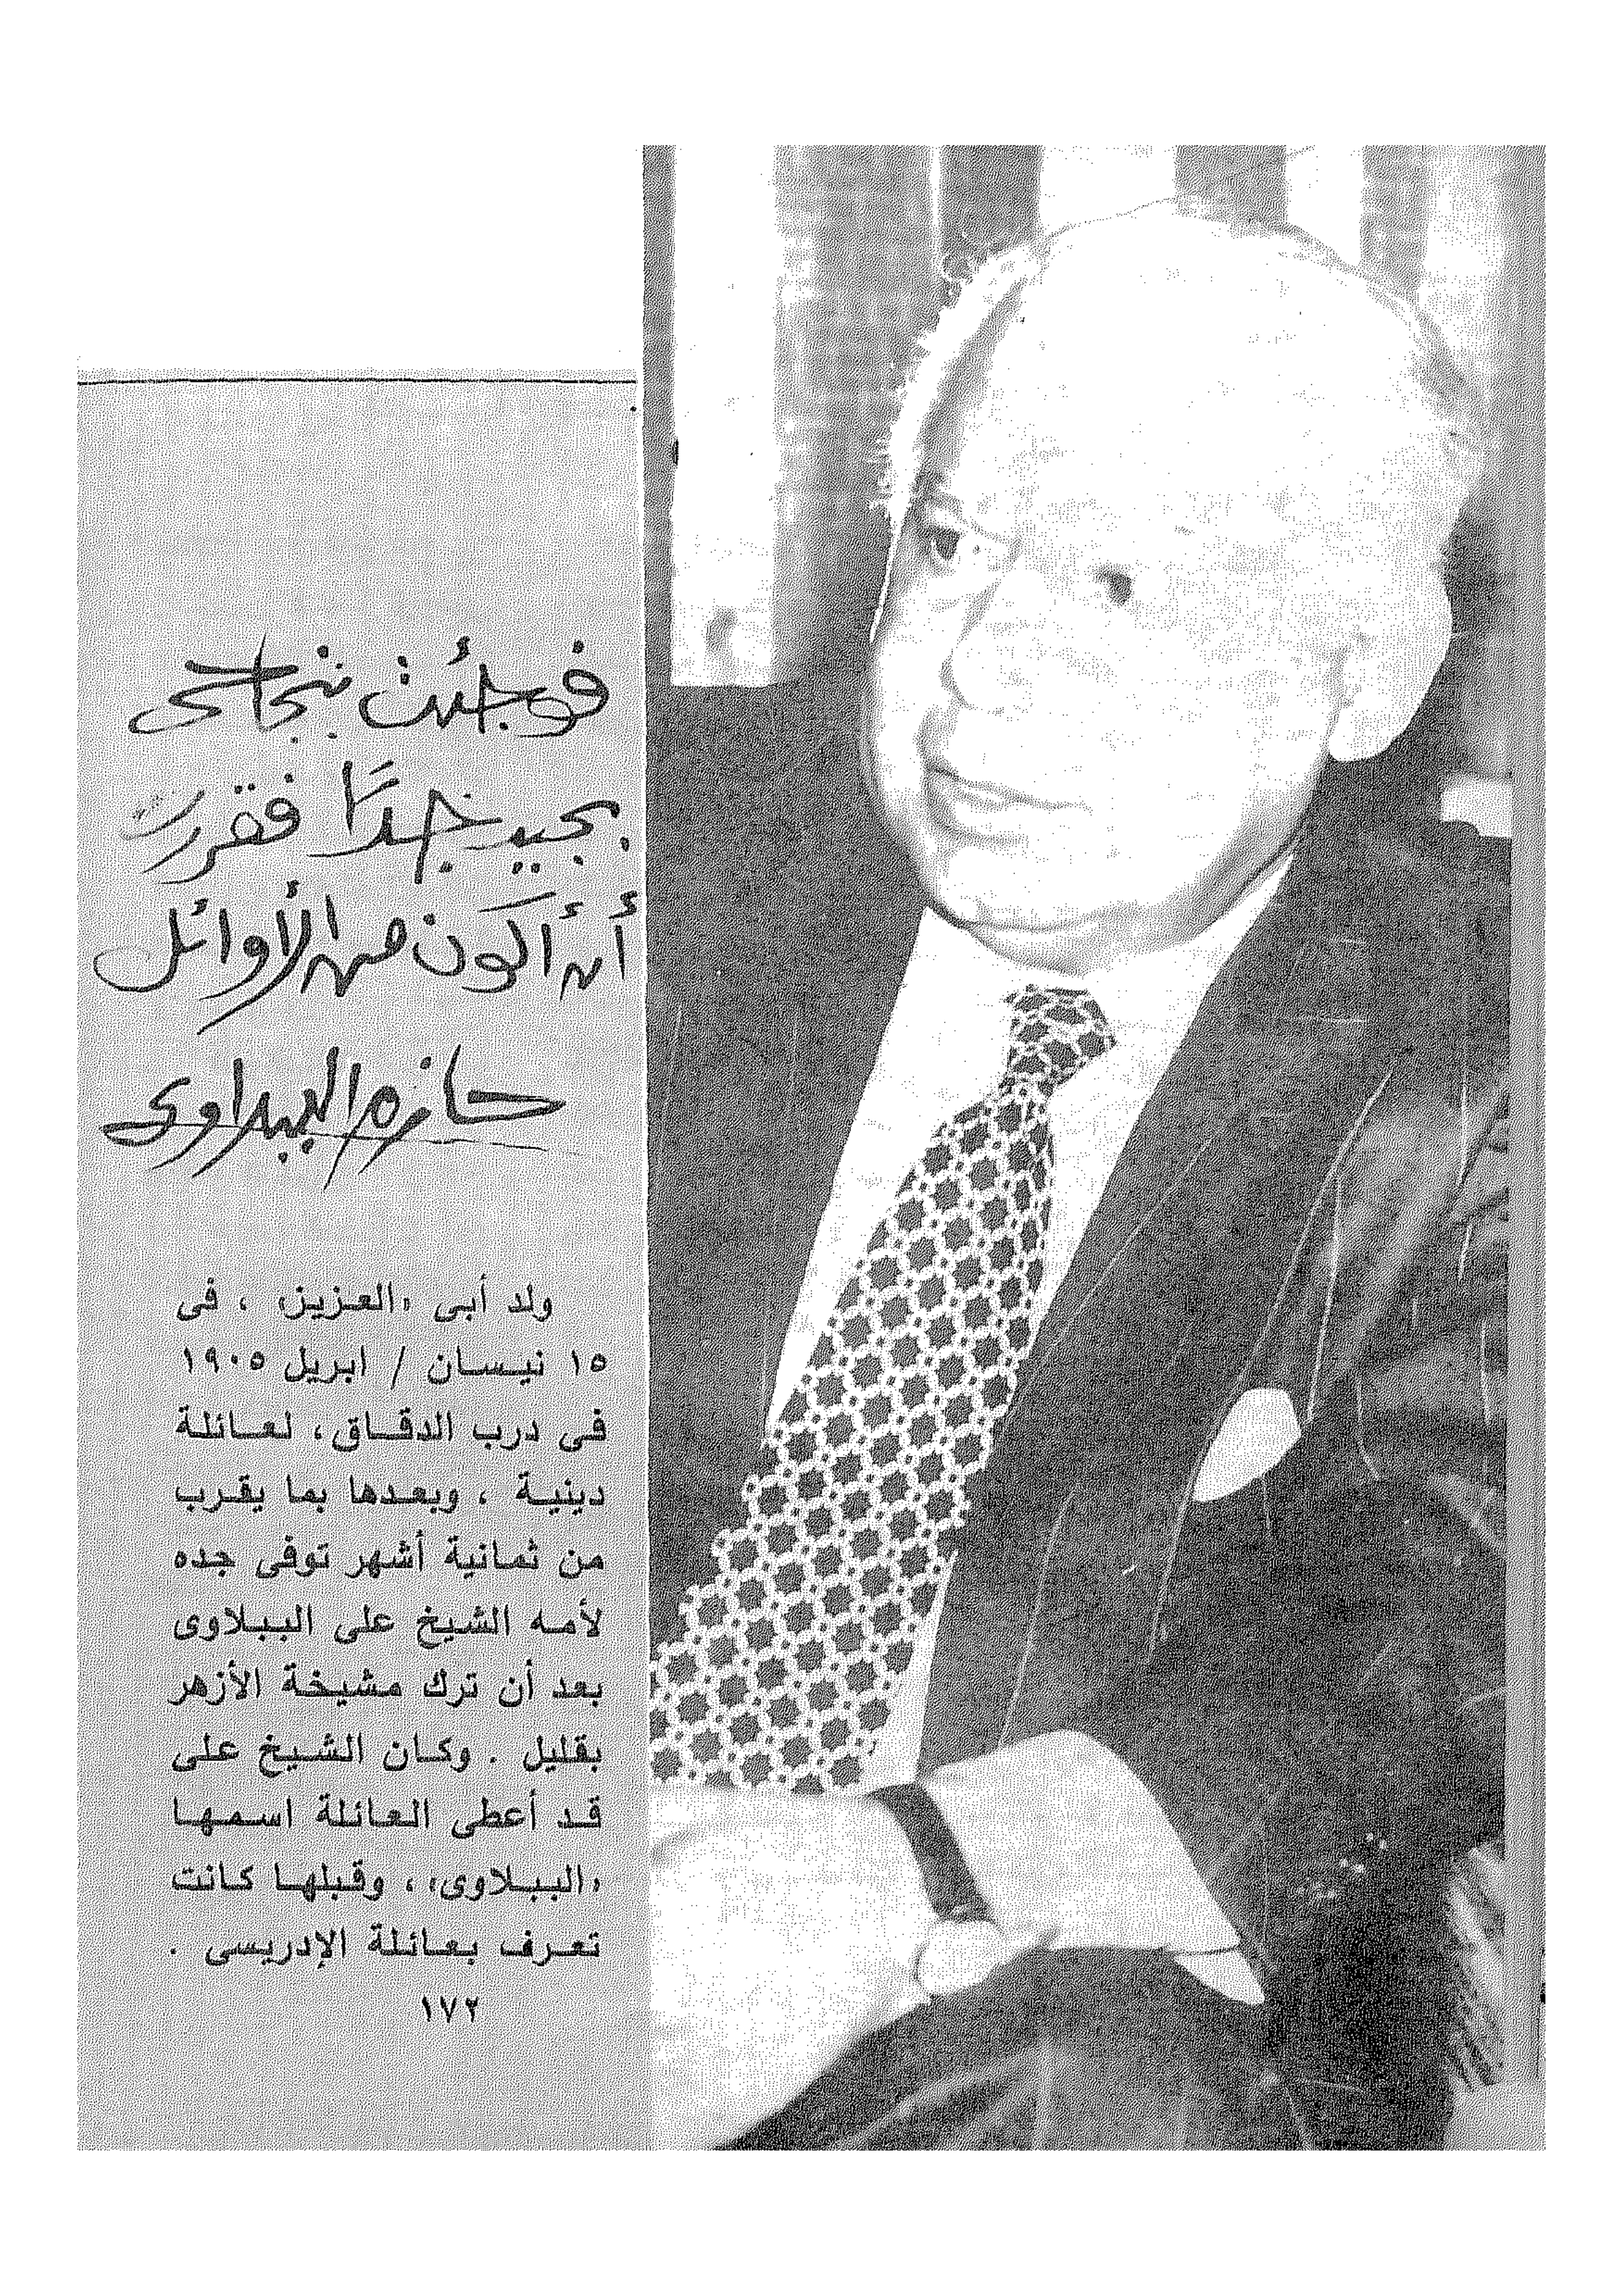 فوجئت بنجاحى
بجيد جدًا فقررت
أن أكون من الأوائل
حازم الببلاوى
ولد أبى «العزيز» ، فى
١٥ نيسان / ابريل ١٩٠٥
فى درب الدقاق، لعائلة
دينية ، وبعدها بما يقرب
من ثمانية أشهر توفى جده
لأمه الشيخ على الببلاوى
بعد أن ترك مشيخة الأزهر
بقليل . وكان الشيخ على
قد أعطى العائلة اسمها
«الببلاوى» ، وقبلها كانت
تعرف بعائلة الإدريسى .
١٧٢